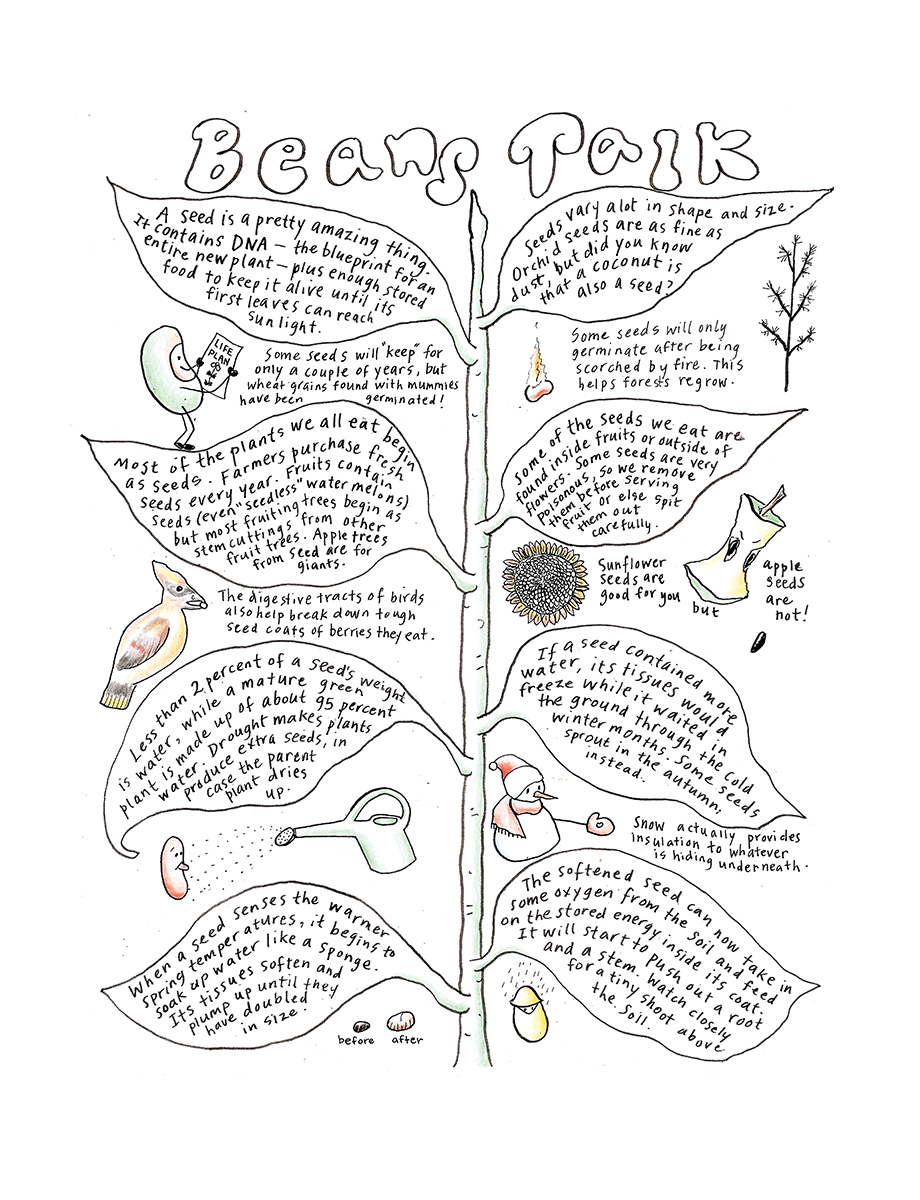 Beans Talk
A seed is a pretty amazing thing.
It contains DNA – the blueprint for an
entire new plant – plus enough stored
food to keep it alive until its
first leaves can reach
sunlight.
Seeds vary a lot in shape and size.
Orchid seeds are as fine as
dust, but did you know
that a coconut is
also a seed?
LIFE
PLAN
Some seeds will "keep" for
only a couple of years, but
wheat grains found with mummies
have been germinated!
Some seeds will only
germinate after being
scorched by fire. This
helps forests regrow.
Most of the plants we all eat begin
as seeds. Farmers purchase fresh
seeds every year. Fruits contain
seeds (even "seedless" water melons)
but most fruiting trees begin as
stem cuttings from other
fruit trees. Apple trees
from seed are for
giants.
Some of the seeds we eat are
found inside fruits or outside of
flowers. Some seeds are very
poisonous, so we remove
them before serving
fruit or else spit
them out
carefully.
The digestive tracts of birds
also help break down tough
seed coats of berries they eat.
Sunflower
seeds are
good for you
but
apple
seeds
are
not!
Less than 2 percent of a seed's weight
is water, while a mature green
plant is made up of about 95 percent
water. Drought makes plants
produce extra seeds, in
case the parent
plant dries
up.
If a seed contained more
water, its tissues would
freeze while it waited in
the ground through the cold
winter months. Some seeds
sprout in the autumn,
instead.
Snow actually provides
insulation to whatever
is hiding underneath.
When a seed senses the warmer
spring temperatures, it begins to
soak up water like a sponge.
Its tissues soften and
plump up until they
have doubled
in size.
before after
The softened seed can now take in
some oxygen from the soil and feed
on the stored energy inside its coat.
It will start to push out a root
and a stem. Watch closely
for a tiny shoot above
the soil.